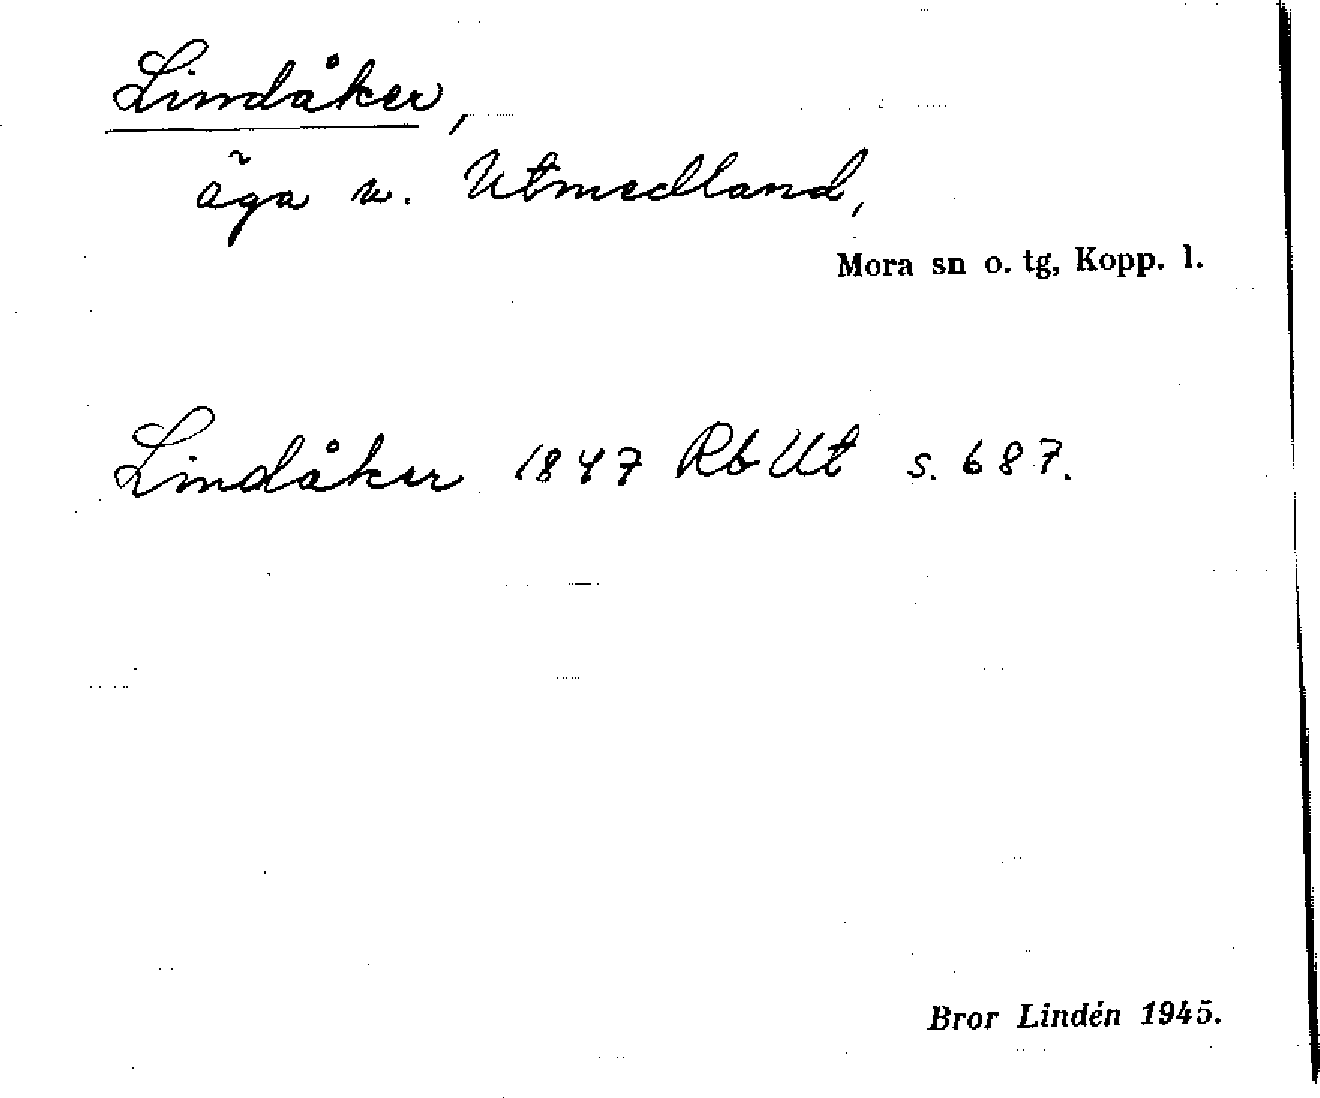 Lindåker,
äga u. Utmedland,
Mora sn o. tg, Kopp. l.
Lindåker 1847 Rb Ut s. 687.
Bror Lindén 1945.